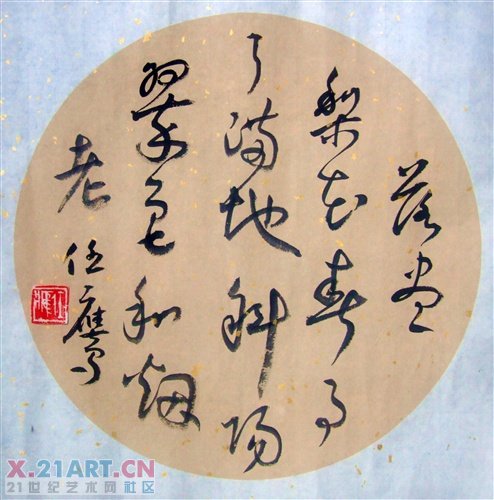 落尽
梨花春事
了满地斜阳
翠色和烟
老 任鹰
X.21ART.CN
21世纪艺术网社区